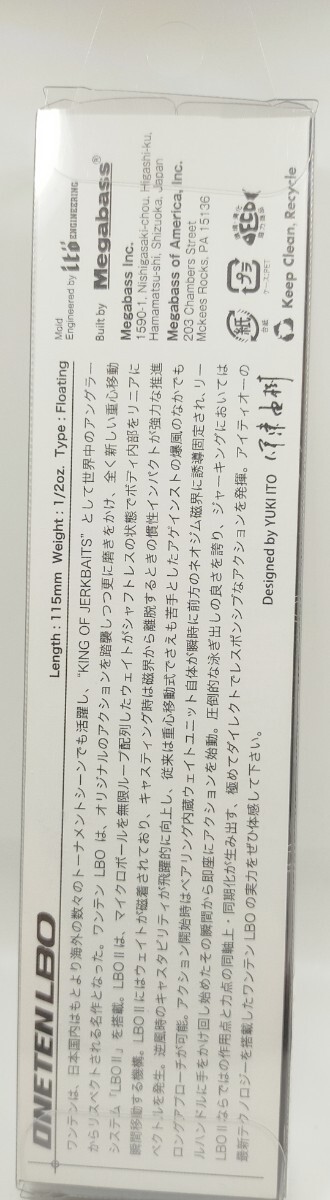 ONETEN LBO
Length : 115mm Weight : 1/2oz. Type : Floating
ワンテンは、日本国内はもとより海外の数々のトーナメントシーンでも活躍し、“KING OF JERKBAITS” として世界中のアングラー
からリスペクトされる名作となった。ワンテン LBO は、オリジナルのアクションを踏襲しつつ更に磨きをかけ、全く新しい重心移動
システム「LBOⅡ」を搭載。LBOⅡは、マイクロボールを無限ループ配列したウェイトがシャフトレスの状態でボディ内部をリニアに
瞬間移動する機構。LBOⅡにはウェイトが磁着されており、キャスティング時は磁界から離脱するときの慣性インパクトが強力な推進
ベクトルを発生。逆風時のキャスタビリティが飛躍的に向上し、従来は重心移動式でさえも苦手としたアゲインストの爆風のなかでも
ロングアプローチが可能。アクション開始時はベアリング内蔵ウェイトユニット自体が瞬時に前方のネオジム磁界に誘導固定され、リー
ルハンドルに手をかけ回し始めたその瞬間から即座にアクションを始動。圧倒的な泳ぎ出しの良さを誇り、ジャーキングにおいては
LBOⅡならではの作用点と力点の同軸上・同期化が生み出す、極めてダイレクトでレスポンシブなアクションを発揮。アイティオーの
最新テクノロジーを搭載したワンテン LBO の実力をぜひ体感して下さい。
Designed by YUKI ITO
伊東由樹
Mold
Engineered by ito ENGINEERING
Built by Megabass®
Megabass Inc.
1590-1, Nishigasaki-chou, Higashi-ku,
Hamamatsu-shi, Shizuoka, Japan
Megabass of America, Inc.
203 Chambers Street
Mckees Rocks, PA 15136
紙
台紙
プラ
ケース:PET
Keep Clean, Recycle